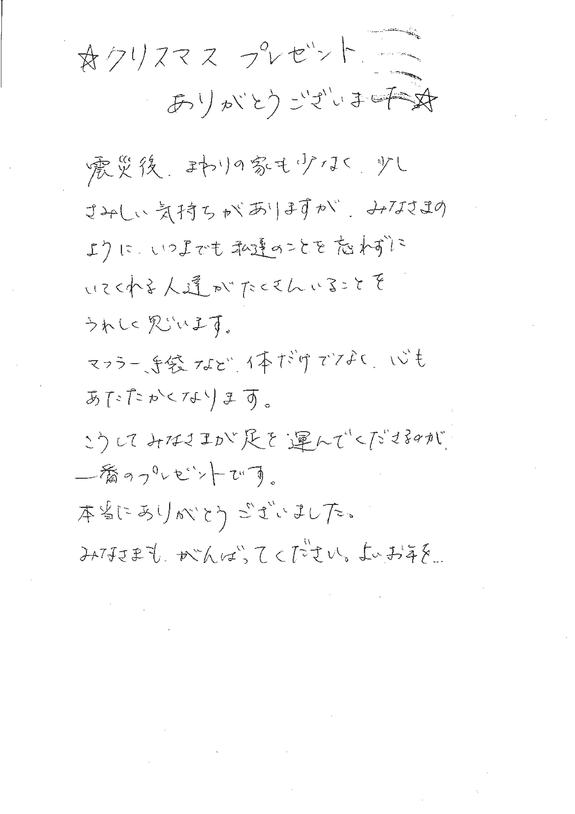 ☆クリスマス プレゼント
ありがとうございました☆
震災後、まわりの家も少なく、少し
さみしい気持ちがありますが、みなさまの
ように、いつまでも私達のことを忘れずに
いてくれる人達がたくさんいることを
うれしく思います。
マフラー、手袋など、体だけでなく、心も
あたたかくなります。
こうしてみなさまが足を運んでくださるのが、
一番のプレゼントです。
本当にありがとうございました。
みなさまも、がんばってください。よいお年を…